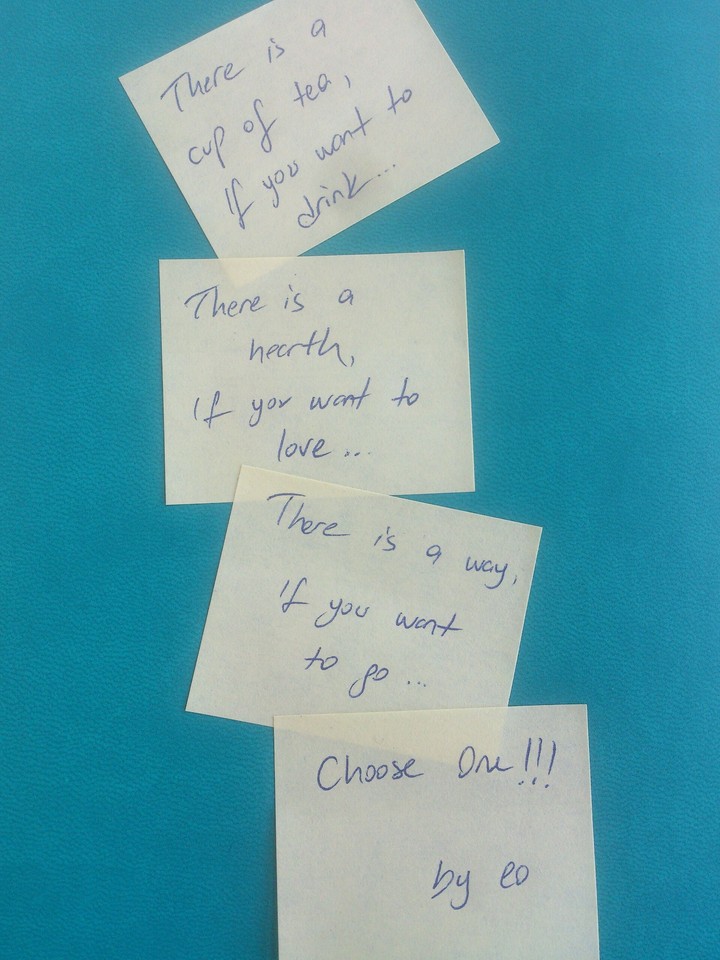 There is a
cup of tea,
If you want to
drink...
There is a
hearth,
If you want to
love...
There is a way,
If you want
to go...
Choose One!!!
by eo